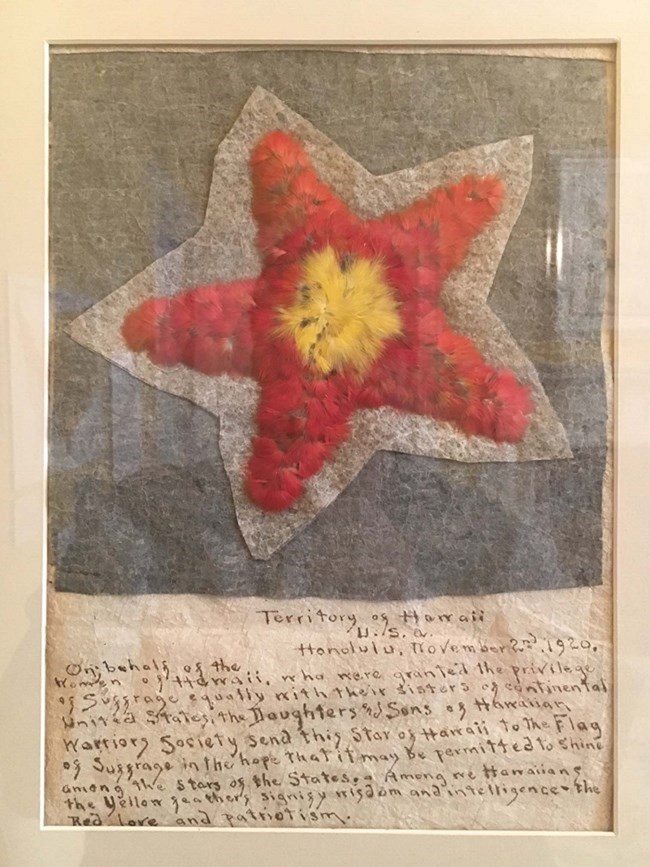 Territory of Hawaii
U.S.a.
Honolulu, November 2nd, 1920.
On behalf of the
women of Hawaii, who were granted the privilege
of Suffrage equally with their sisters of continental
United States, the Daughters and Sons of Hawaiian
Warriors Society, send this Star of Hawaii to the Flag
of Suffrage in the hope that it may be permitted to shine
among the stars of the States. Among we Hawaiians
the Yellow feathers signify wisdom and intelligence - the
Red love and patriotism.